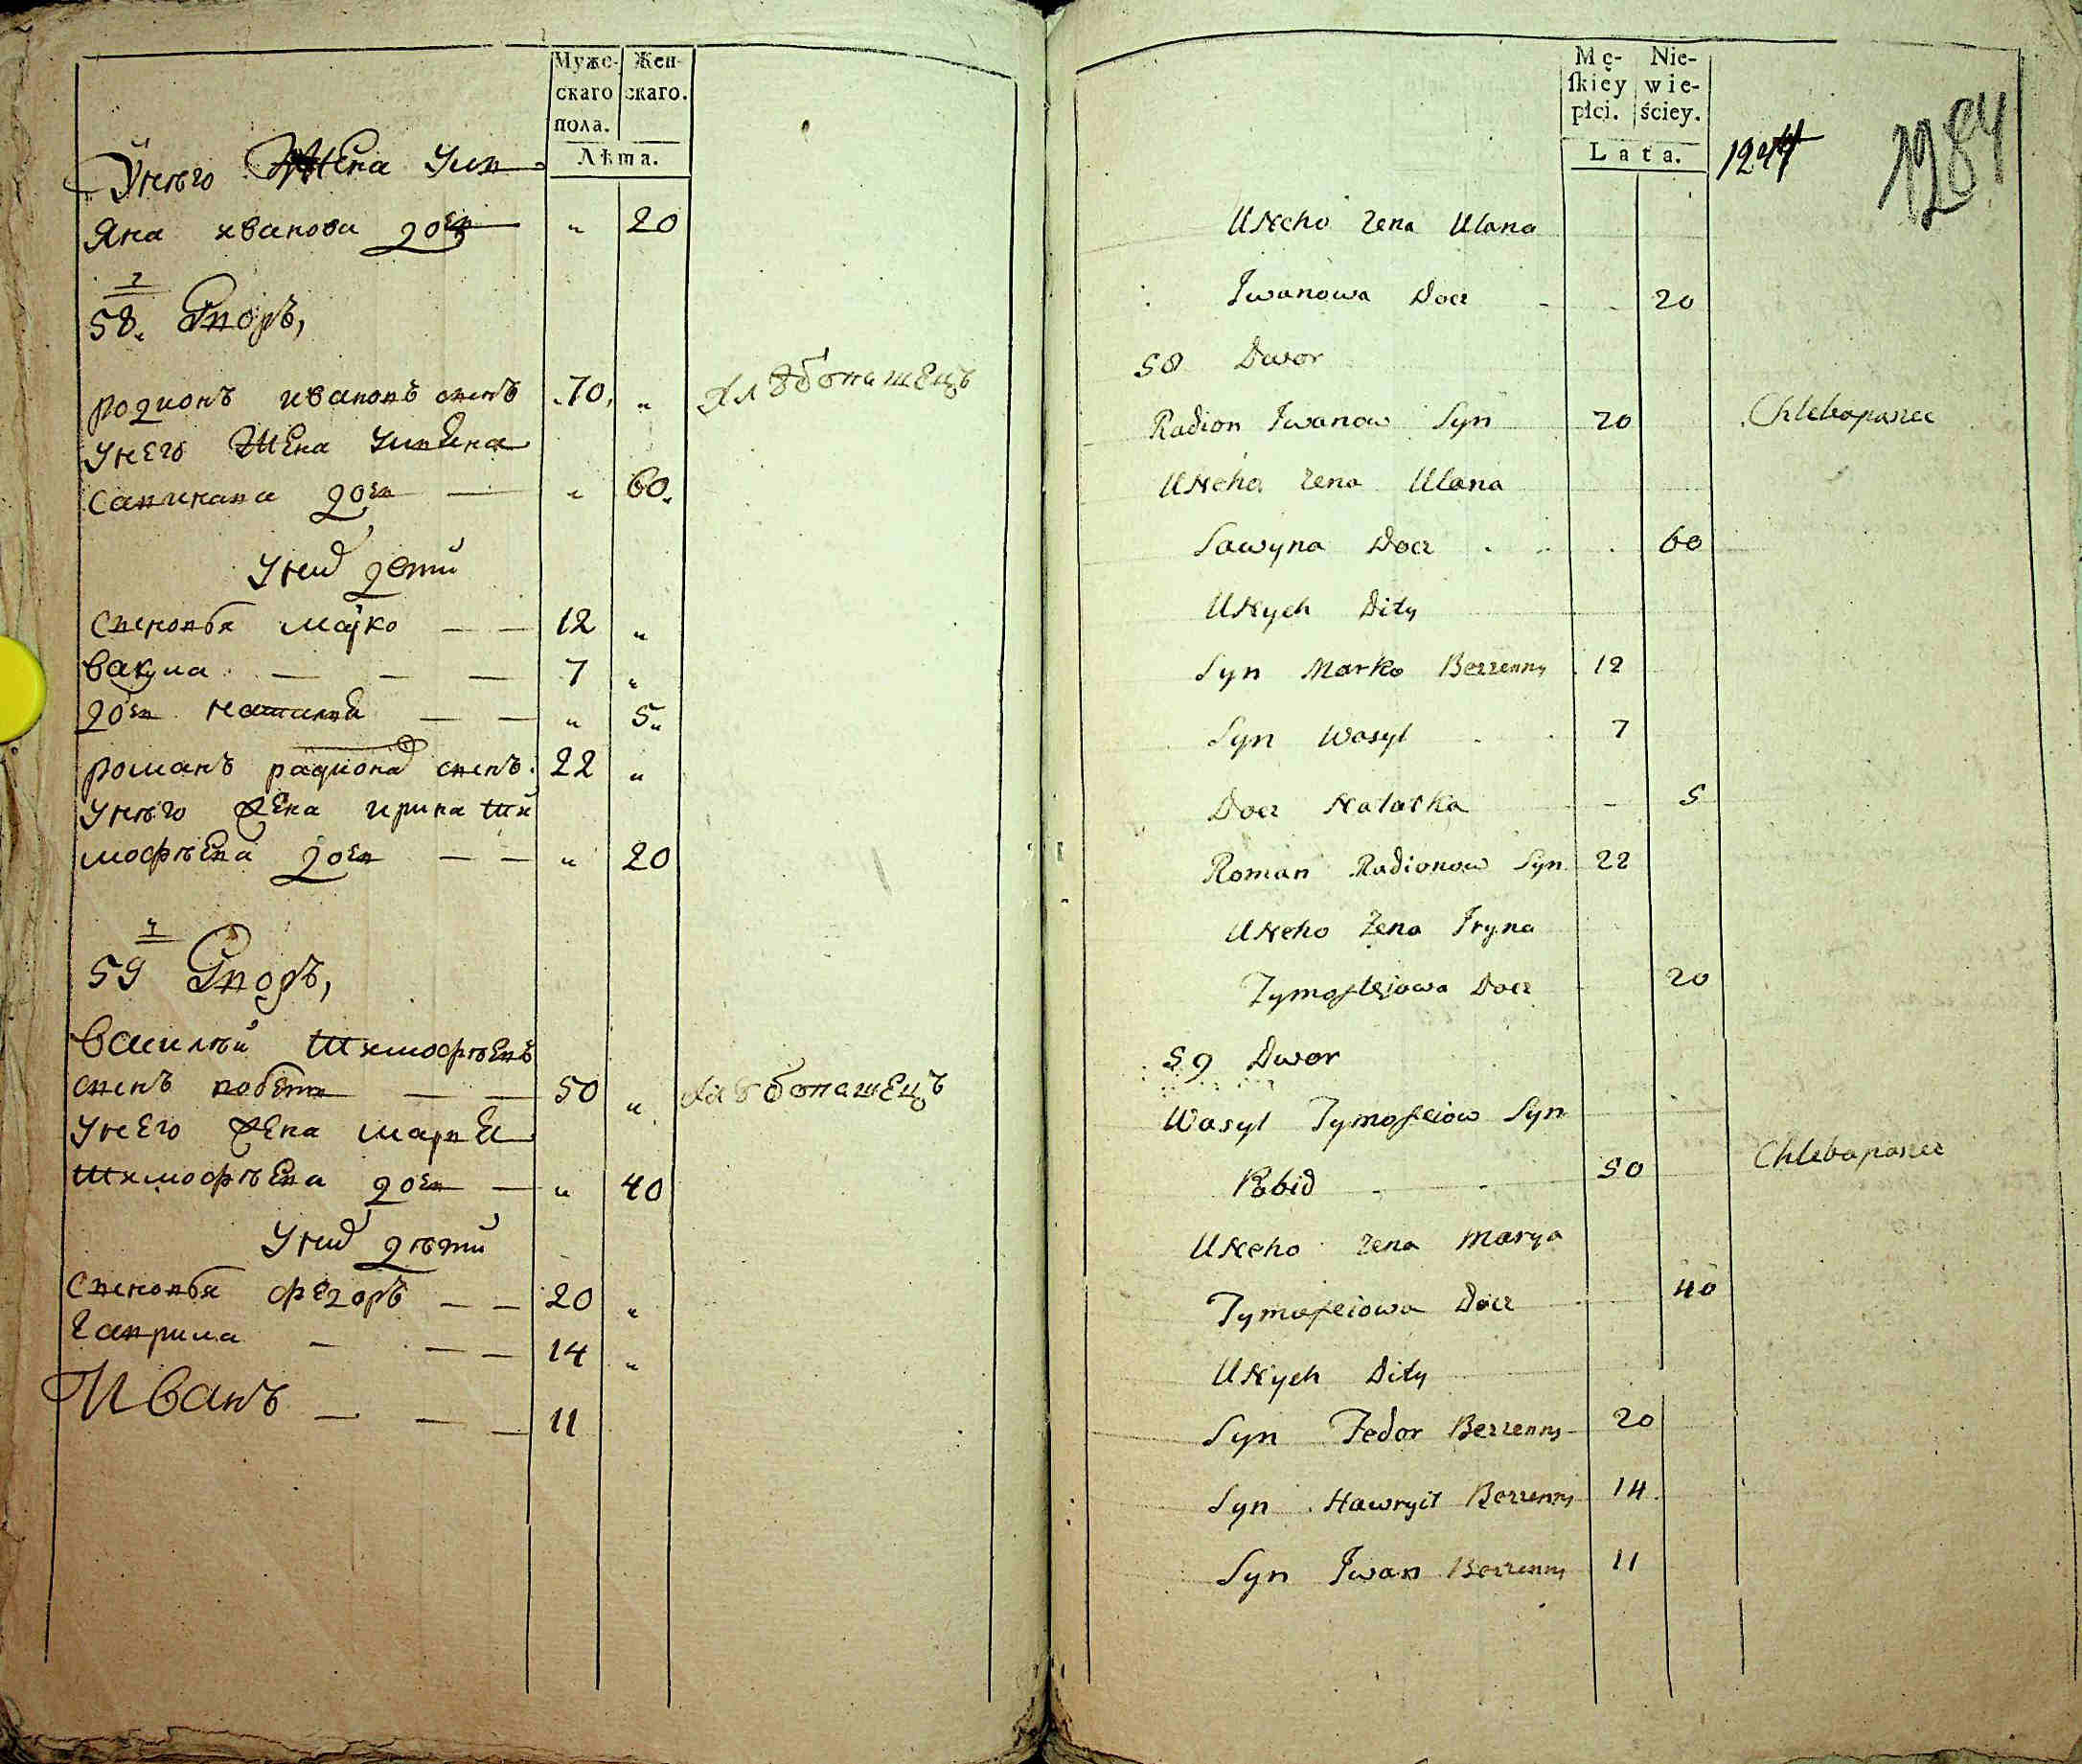 Мужс- Жен-
скаго скаго.
пола.
Лѣта.
Унѣго жена Ули
яна иванова дочь " 20
58. Дворъ,
родионъ ивановъ синъ 70, " хлѣбопашецъ
унего жена Улияна
савинана дочь — " 60.
Уних дети
синовья марко — — 12 "
вакула — — — 7 "
дочь наталия — — " 5 "
романъ радионов синъ. 22 "
унѣго жена ирина ти
мофѣева дочь — — " 20
59 Дворъ,
василѣй тимофѣевъ
синъ побетъ — — 50 " хлѣбопашецъ
унего жена мария
тимофѣева дочь — " 40
Уних дѣти
синовья федоръ — — 20 "
гаврила — — — 14 "
Иванъ — — — 11
Mę- Nie-
ſkiey wie-
płci. ściey.
Lata.
1244 1284
UNeho żena Ulana
Jwanowa Docz - - 20
58 Dwor
Radion Jwanow Syn 70 Chleboparzec
UNeho żena Ulana
Sawyna Docz . . . 60
UNych Dity
Syn Marko Bezzenny 12
Syn Wasyl . . 7
Docz Natalka - 5
Roman Radionow Syn 22
UNeho żena Jryna
Tymofiejowa Docz - 20
59 Dwor
Wasyl Tymofieiow Syn
Pobid - - 50 Chleboparzec
UNeho zena Marya
Tymofieiowa Docz 40
UNych Dity
Syn Fedor Bezzenny 20
Syn Hawrył Bezzenny 14
Syn Jwan Bezzenny 11